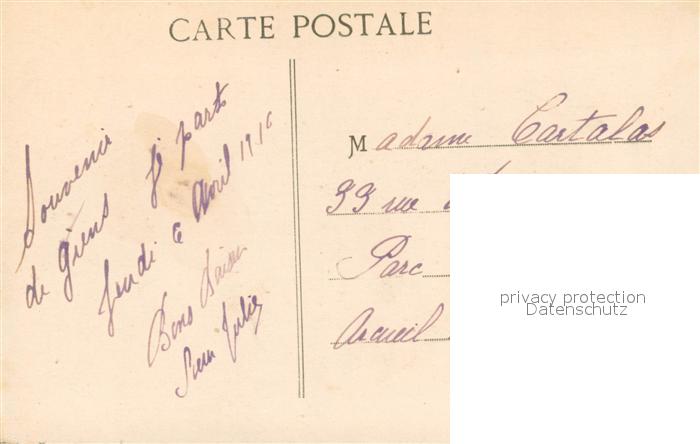 CARTE POSTALE
Souvenir
de Giens Je parts
Jeudi 6 Avril 1916
Bons Baiser
Julie
Madame Cartalas
33 rue
Parc
Arcueil
privacy protection
Datenschutz